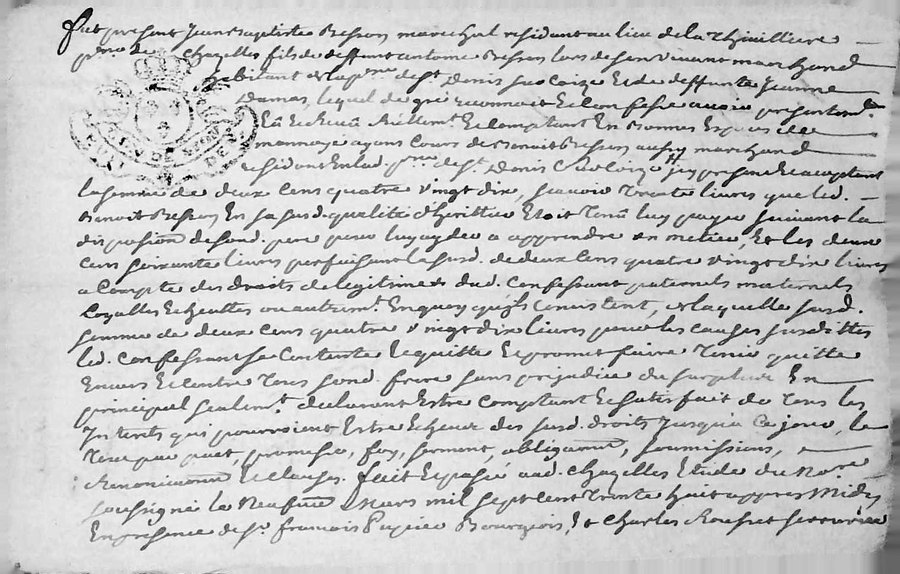 fut present Jean Baptiste Besson marechal residant au lieu de la Thuilliere
p.sse de Chazelles fils de deffunt antoine Besson lors de son vivant marchand
habitant de la p.sse de S.t Denis sur Coize et de deffunte Jeanne
Damas, lequel de gré reconnoit et confesse avoir presentem.t
Eû et Receû Réellem.t et Comptant En Bonnes Especes de
monnoye ayans Cours de Benoit Besson aussy marchand
residant En lad. p.sse de S.t Denis sur Coize icy present et acceptant
la somme de deux Cens quatre vingt dix, scavoir Trente livres que led.
Benoit Besson En sa susd. qualité d'heritier Etoit Tenû luy payer suivant la
disposion de sond. pere pour luy ayder a apprendre un metier, Et les deux
Cens soixante livres parfaisant la susd. de deux Cens quatre vingt dix livres
a Compte des droits de legitime dud. Confessant paternels maternels
Coyalles Echeultes ou autrem.t En quoy qu'ils Consistent, de laquelle susd.
somme de deux Cens quatre vingt dix livres pour les Causes susdittes
led. Confessant se Contente Ie quitte Et promet faire Tenir quitte
Envers Et Contre Tous sond. frere sans prejudice du surplus En
principal seulem.t declarant Estre Comptant Et satisfait de Tous les
Interets qui pourroient Estre Echeus des susd. droits Jusqu'a Ce jour, le
Tout par pact, promesse, foy, serment, obligaonn, soumissions,
Renonciaonn Et Clauses. fait Et passé aud. Chazelles Etude du No.re
soussigné le Neufv.me Mars mil sept Cent Trente huit appres Midy
En presence de S.r francois Bourgeois, Et Charles Rousset serrurier